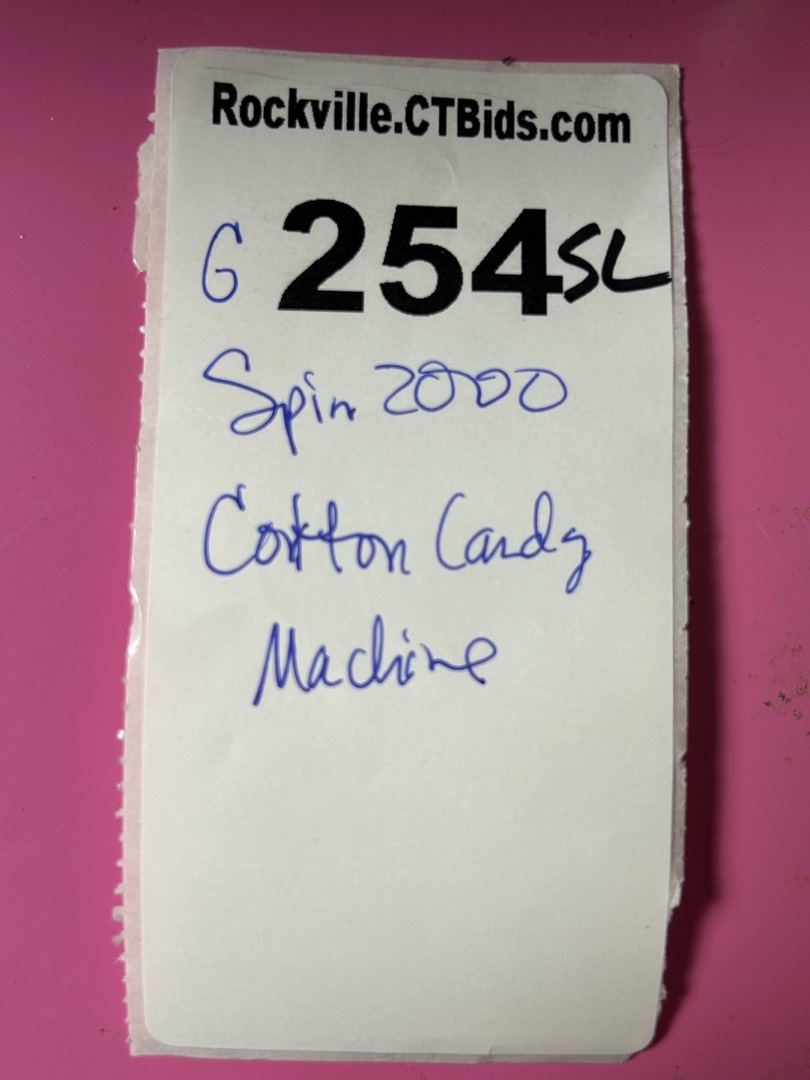 Rockville.CTBids.com
G 254SL
Spin 2000
Cotton Candy
Machine